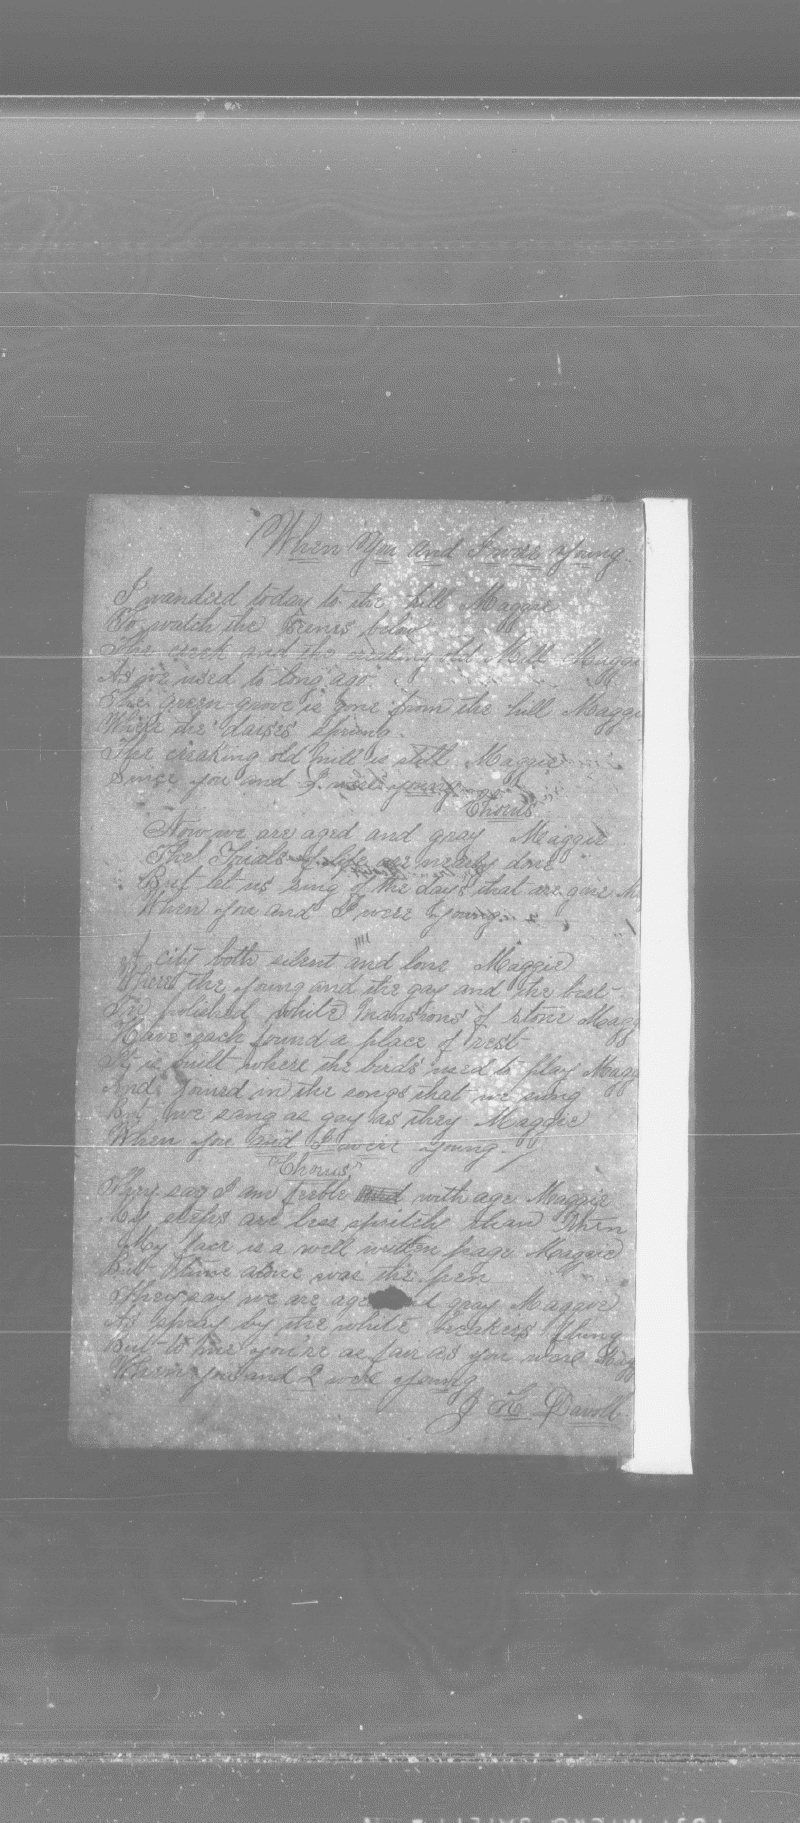 When You and I were Young.
I wanderd today to the hill Maggie
To watch the Scenes below
The creek and the creaking old Mill Maggi
As we used to long ago
The green grove is gone from the hill Maggi
Where the daises sprung.
The creaking old mill is still Maggie
Since you and I were young
Chorus
Now we are aged and gray Maggie
The Trials of life are nearly done
But let us sing of the days that are gone M
When you and I were young
A city both silent and lone Maggie
Where the young and the gay and the best
In polished white mansions of stone Magg
Have each found a place of rest
It is built where the birds used to play Magg
And joined in the songs that we sung
But we sang as gay as they Maggie
When you and I were young.
"Chorus"
They say I am feeble with age Maggie
My steps are less spritely than when
My face is a well written page Maggie
But time alone was the pen
They say we are aged gray Maggie
As spray by the white breakers flung
But to me you're as fair as you were Mag
When you and I were young
J H Davoll